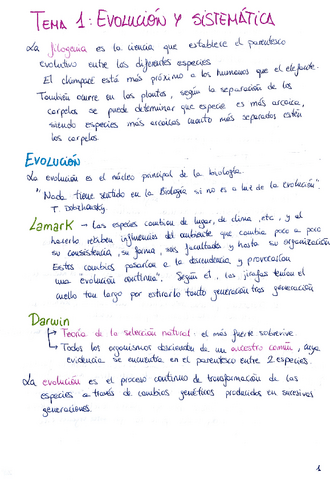 TEMA 1: EVOLUCIÓN Y SISTEMÁTICA
La filogenia es la ciencia que establece el parentesco
evolutivo entre las diferentes especies.
El chimpacé está más próximo a los humanos que el elefante.
También ocurre en las plantas, según la separación de los
carpelos se puede determinar que especie es más arcaica,
siendo especies más arcaicas cuanto más separados estén
los carpelos.
EVOLUCIÓN
La evolución es el núcleo principal de la biología.
"Nada tiene sentido en la Biología si no es a luz de la evolución".
T. Dobzhansky
Lamark → las especies cambian de lugar, de clima, etc, y al
hacerlo reciben influencias del ambiente que cambia poco a poco
su consistencia, su forma, sus facultades y hasta su organización
Estos cambios pasarían a la descendencia, y provocarían
una "evolución continua". Según el, las jirafas tenían el
cuello tan largo por estirarlo tanto generación tras generación
Darwin
↳ Teoría de la selección natural: el más fuerte sobrevive.
↳ Todos los organismos descienden de un ancestro común, cuya
evidencia se encuentra en el parentesco entre 2 especies.
La evolución es el proceso continuo de transformación de las
especies a través de cambios genéticos producidos en sucesivas
generaciones.
1